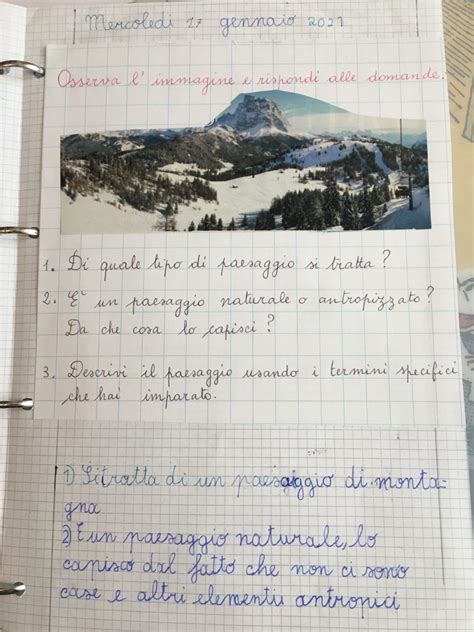 Mercoledì 17 gennaio 2021
Osserva l'immagine e rispondi alle domande.
1. Di quale tipo di paesaggio si tratta?
2. E' un paesaggio naturale o antropizzato?
Da che cosa lo capisci?
3. Descrivi il paesaggio usando i termini specifici
che hai imparato.
1) Si tratta di un paesaggio di monta-
gna
2) È un paesaggio naturale, lo
capisco dal fatto che non ci sono
case e altri elementi antropici